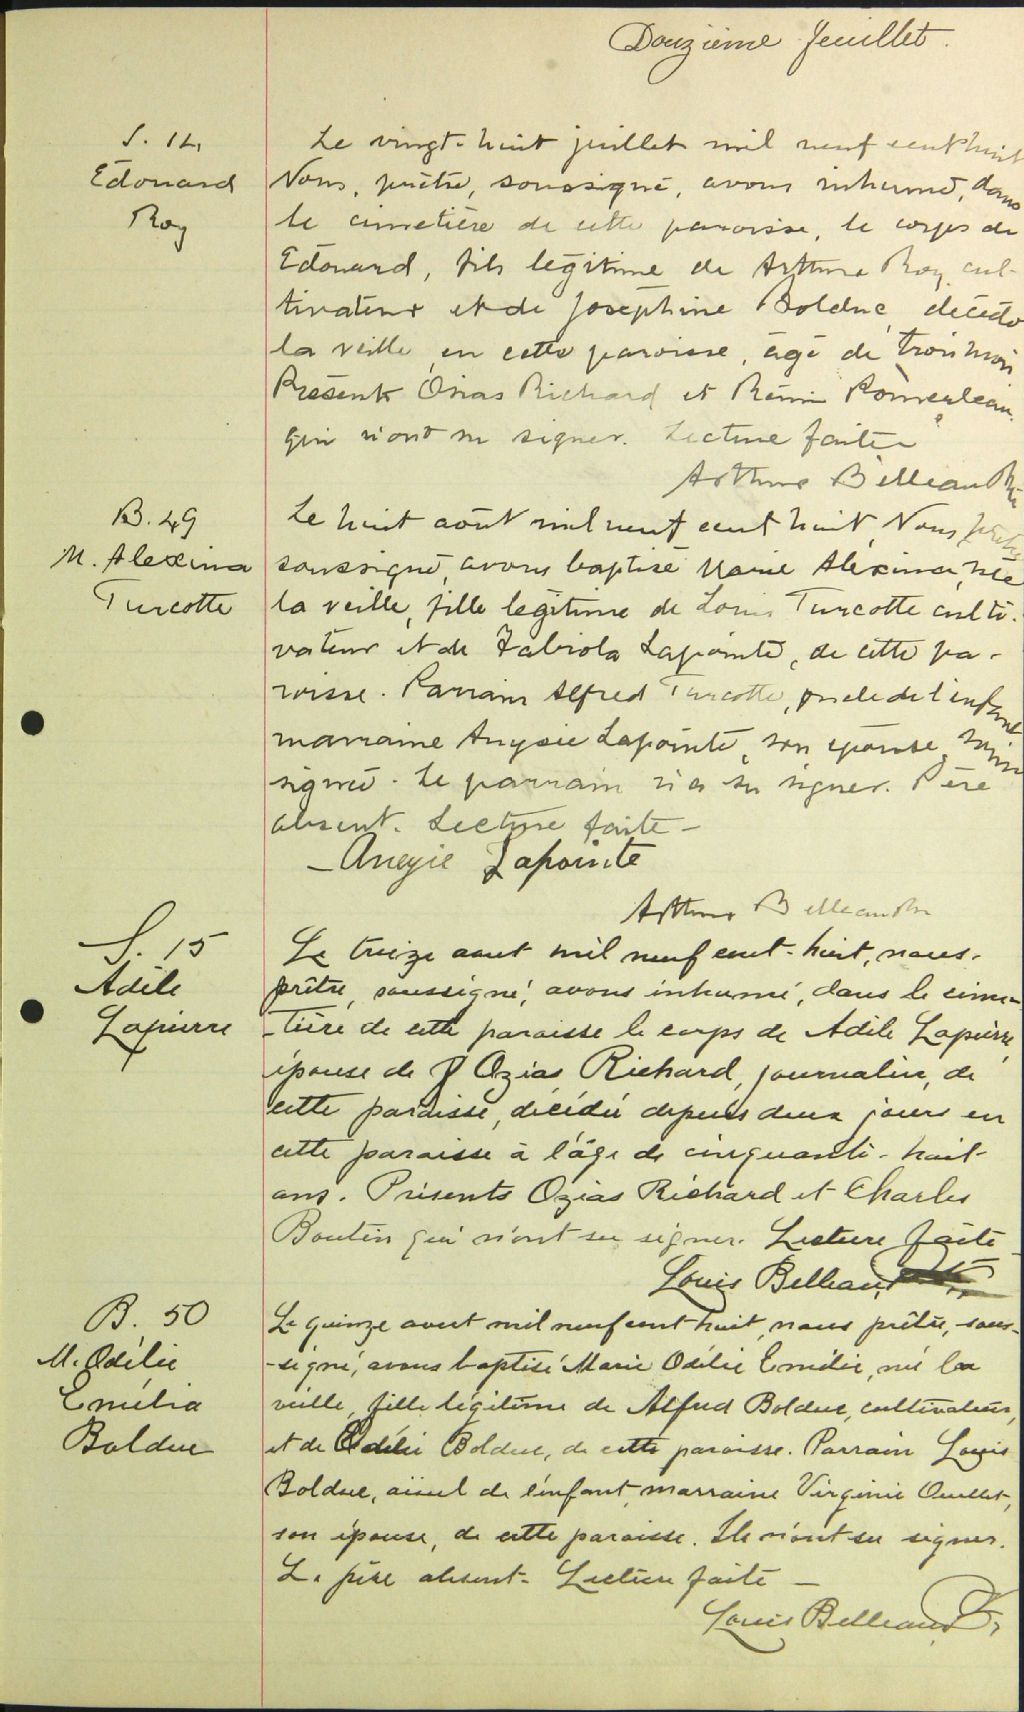 Douzième feuillet.
S. 14
Edouard
Roy
Le vingt-huit juillet mil neuf cent huit
Nous, prêtre, soussigné, avons inhumé, dans
le cimetière de cette paroisse, le corps de
Edouard, fils légitime de Arthur Roy cul-
tivateur et de Joséphine Bolduc, décédé
la veille en cette paroisse, âgé de trois mois
Présents Ozias Richard et Rémi Pomerleau
qui n'ont su signer. Lecture faite
Arthur Belleau Ptre
B. 49
M. Alexina
Turcotte
Le huit août mil neuf cent huit, Nous prêtre
soussigné, avons baptisé Marie Aléxina, née
la veille, fille légitime de Louis Turcotte culti-
vateur et de Fabiola Lapointe, de cette pa-
roisse. Parrain Alfred Turcotte, oncle de l'enfant
marraine Anysie Lapointe, son épouse, sous
signée. Le parrain n'a su signer. Père
absent. Lecture faite -
- Aneyie Lapointe
Arthur Belleau Ptre
S. 15
Adèle
Lapierre
Le treize aout mil neuf cent-huit, nous-
prêtre, soussigné, avons inhumé, dans le cime-
-tière de cette paroisse le corps de Adèle Lapierre,
épouse de Ozias Richard, journalier, de
cette paroisse, décédée depuis deux jours en
cette paroisse à l'âge de cinquante-huit-
ans. Présents Ozias Richard et Charles
Boutin qui n'ont su signer. Lecture faite -
Louis Belleau
B. 50
M. Odélie
Emélia
Bolduc
Le quinze aout mil neuf cent huit, nous prêtre, sous-
-signé, avons baptisé Marie Odélie Emélie, né la
veille, fille légitime de Alfred Bolduc, cultivateur,
et de Odélie Bolduc, de cette paroisse. Parrain Louis
Bolduc, aïeul de l'enfant, marraine Virginie Ouellet,
son épouse, de cette paroisse. Ils n'ont su signer.
Le père absent. Lecture faite -
Louis Belleau Ptr